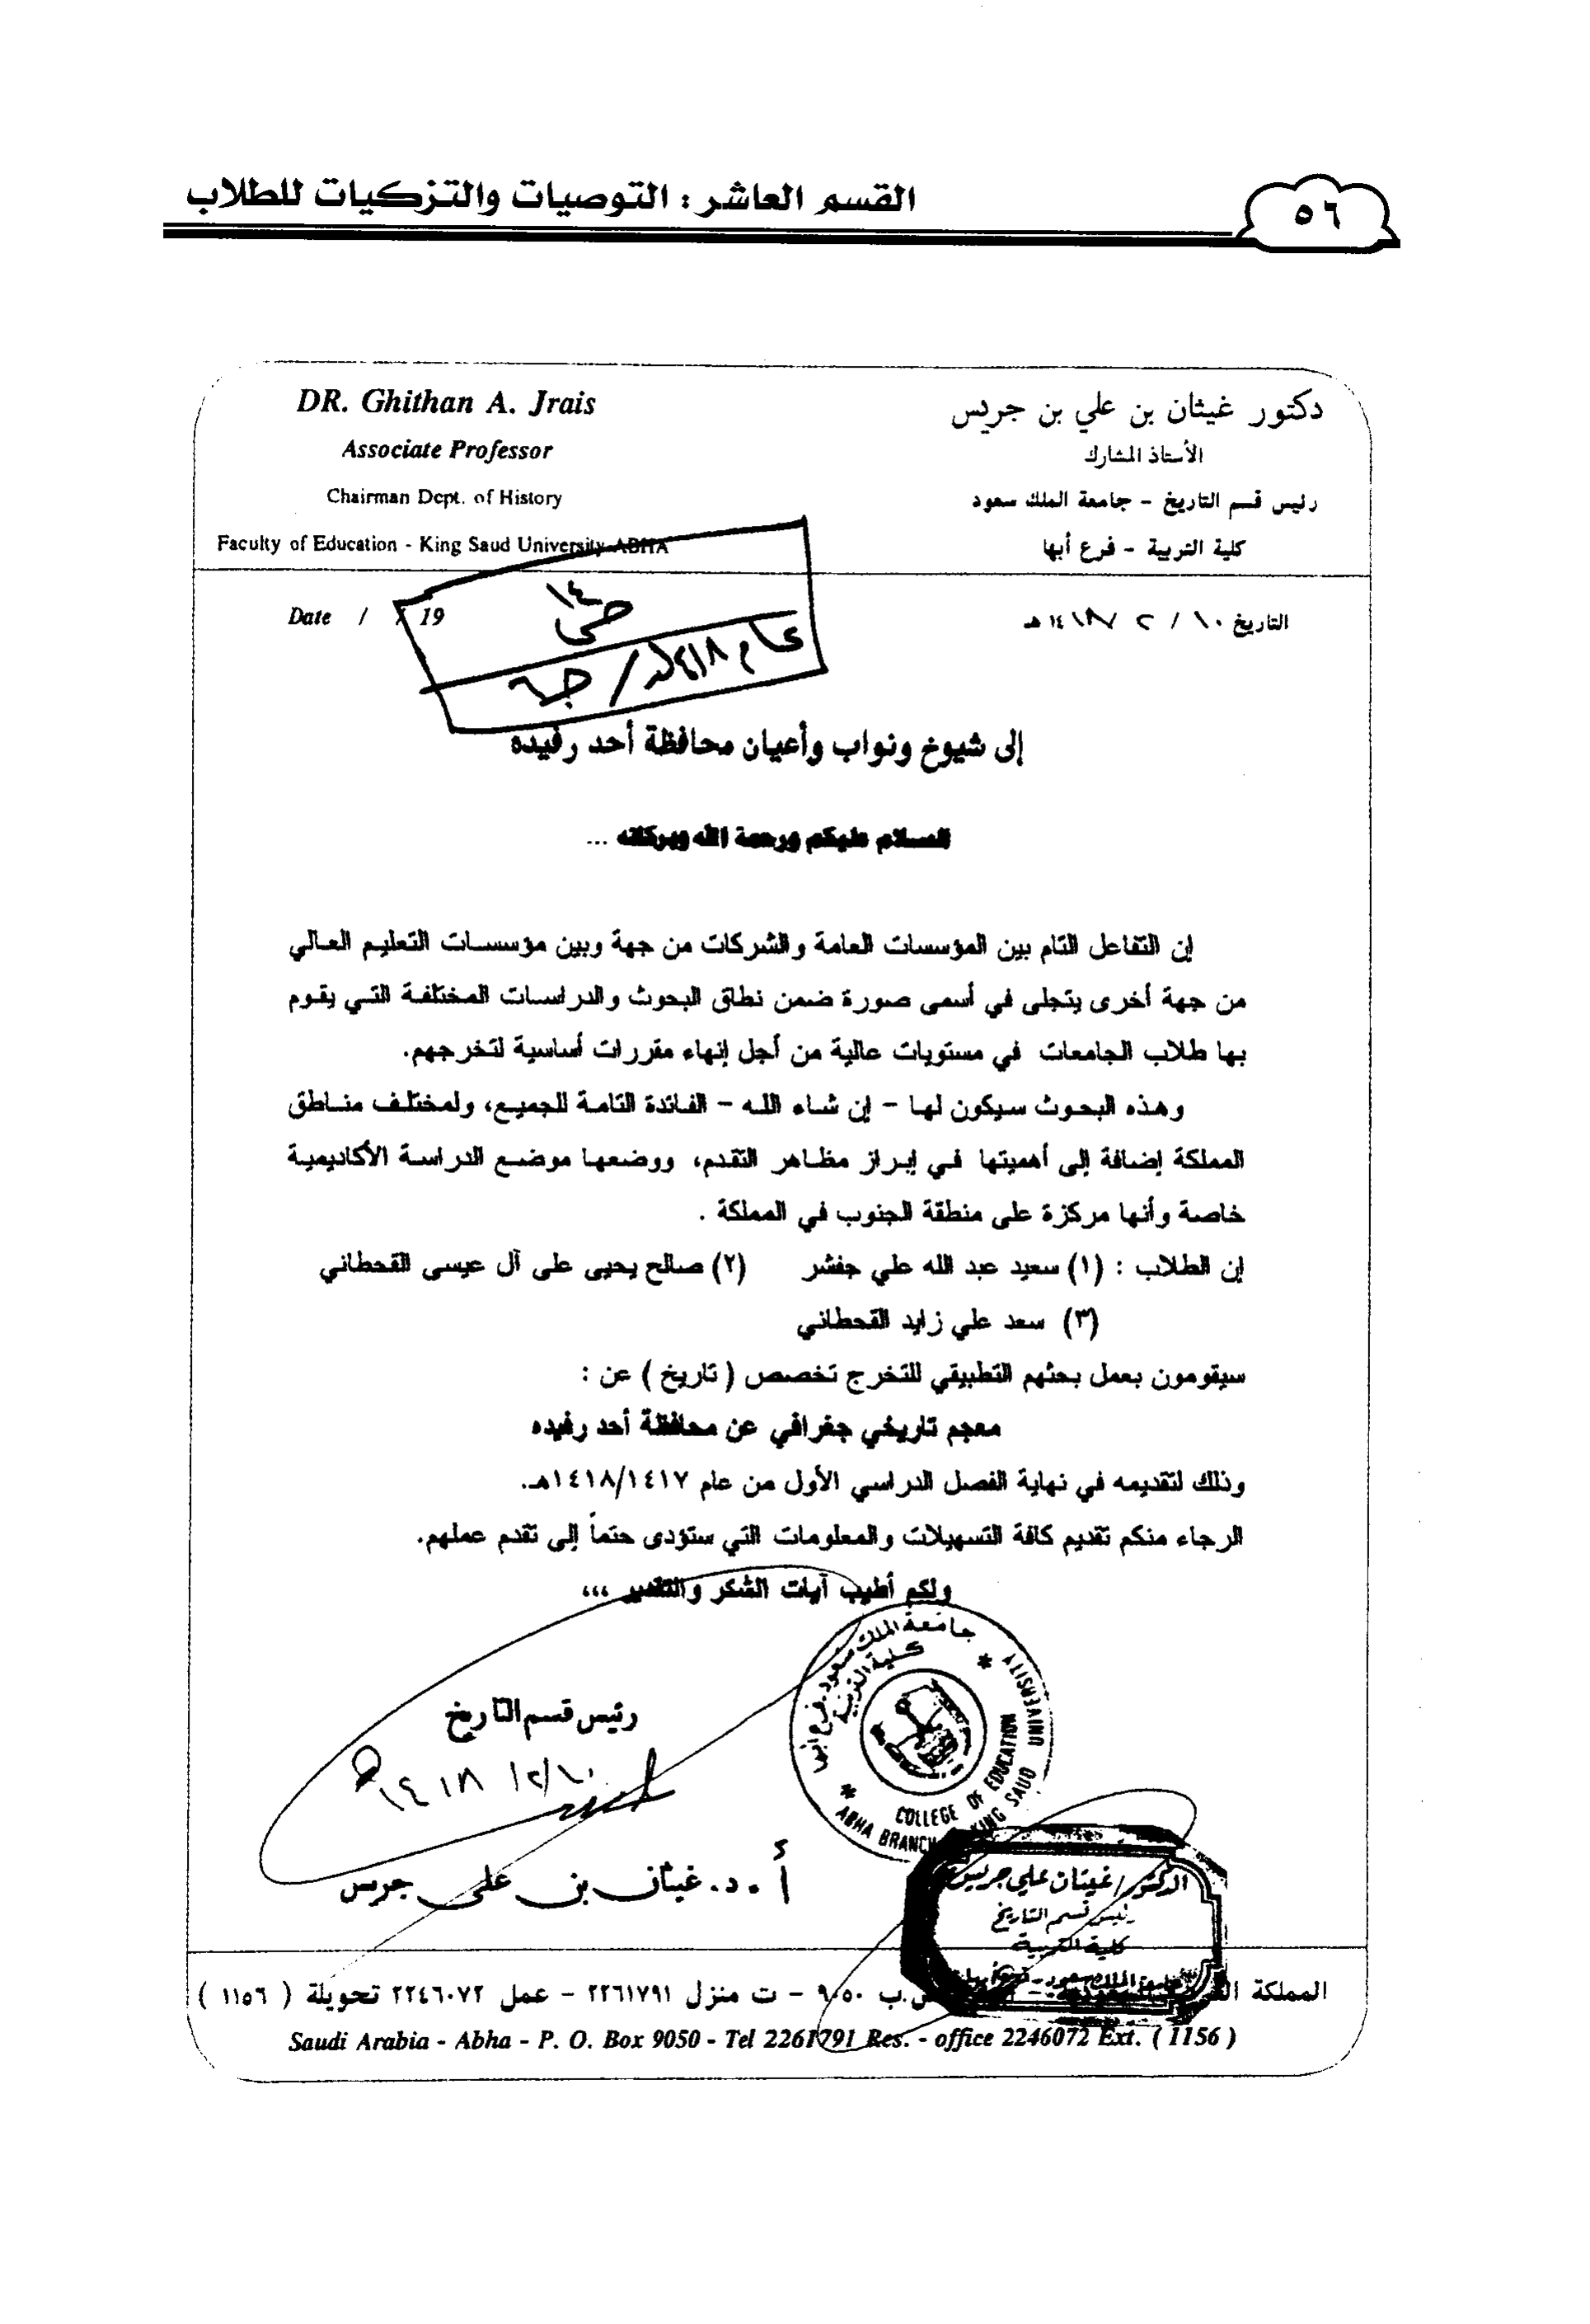 القسم العاشر : التوصيات والتزكيات للطلاب
٥٦
DR. Ghithan A. Jrais
Associate Professor
Chairman Dept. of History
Faculty of Education - King Saud University-ABHA
دكتور غيثان بن علي بن جريس
الأستاذ المشارك
رئيس قسم التاريخ - جامعة الملك سعود
كلية التربية - فرع أبها
Date / / 19
التاريخ ١٠ / ٢ / ١٤١٨ هـ
١٤
عام ١٤١٨هـ /
إلى شيوخ ونواب وأعيان محافظة أحد رفيده
السلام عليكم ورحمة الله وبركاته ...
إن التفاعل التام بين المؤسسات العامة والشركات من جهة وبين مؤسسات التعليم العالي
من جهة أخرى يتجلى في أسمى صورة ضمن نطاق البحوث والدراسات المختلفة التي يقوم
بها طلاب الجامعات في مستويات عالية من أجل إنهاء مقررات أساسية لتخرجهم.
وهذه البحوث سيكون لها - إن شاء الله - الفائدة التامة للجميع، ولمختلف مناطق
المملكة إضافة إلى أهميتها في إبراز مظاهر التقدم، ووضعها موضع الدراسة الأكاديمية
خاصة وأنها مركزة على منطقة الجنوب في المملكة .
إن الطلاب : (١) سعيد عبد الله علي جفشر (٢) صالح يحيى على آل عيسى القحطاني
(٣) سعد علي زايد القحطاني
سيقومون بعمل بحثهم التطبيقي للتخرج تخصص ( تاريخ ) عن :
معجم تاريخي جغرافي عن محافظة أحد رفيده
وذلك لتقديمه في نهاية الفصل الدراسي الأول من عام ١٤١٨/١٤١٧هـ.
الرجاء منكم تقديم كافة التسهيلات والمعلومات التي ستؤدى حتماً إلى تقدم عملهم.
ولكم أطيب آيات الشكر والتقدير ،،،
جامعة الملك سعود. فرع أبها
كلية التربية
COLLEGE OF EDUCATION
ABHA BRANCH KING SAUD UNIVERSITY
رئيس قسم التاريخ
١٠/٢/ ١٤١٨هـ
أ.د. غيثان بن علي جريس
الدكتور/ غيثان علي جريس
رئيس قسم التاريخ
كلية التربية
المملكة العربية السعودية - أبها - ص.ب ٩٠٥٠ - ت منزل ٢٢٦١٧٩١ - عمل ٢٢٤٦٠٧٢ تحويلة ( ١١٥٦ )
Saudi Arabia - Abha - P. O. Box 9050 - Tel 2261791 Res. - office 2246072 Ext. ( 1156 )